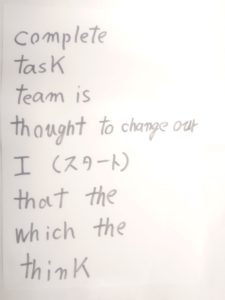 complete
task
team is
thought to change our
I (スタート)
that the
which the
think